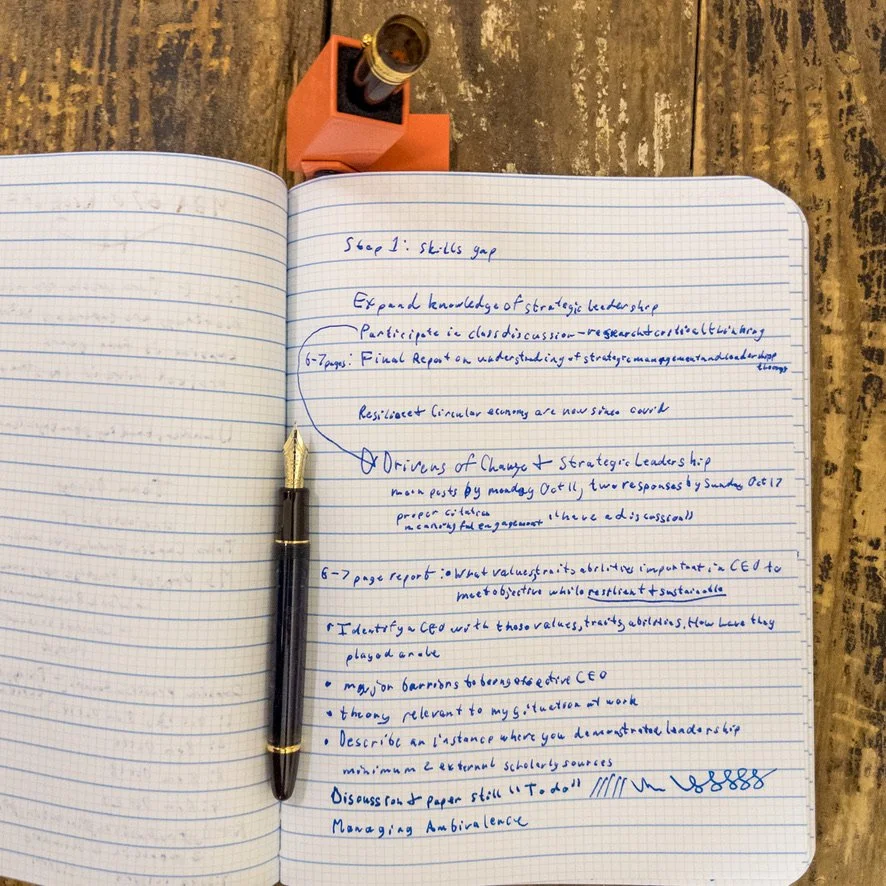 Step 1: Skills gap
Expand knowledge of strategic leadership
Participate in class discussion - research + critical thinking
6-7 pages: Final Report on understanding of strategic management and leadership
theory
Resilience + Circular economy are now since covid
Drivers of Change + Strategic Leadership
main posts by monday Oct 11, two responses by Sunday Oct 17
proper citation
meaningful engagement "have a discussion"
6-7 page report: • What values, traits, abilities important in CEO to
meet objective while resilient + sustainable
• Identify a CEO with those values, traits, abilities. How have they
played a role
• major barriers to being effective CEO
• theory relevant to my situation at work
• Describe an instance where you demonstrated leadership
minimum 2 external scholarly sources
Discussion + paper still "To do"
Managing Ambivalence